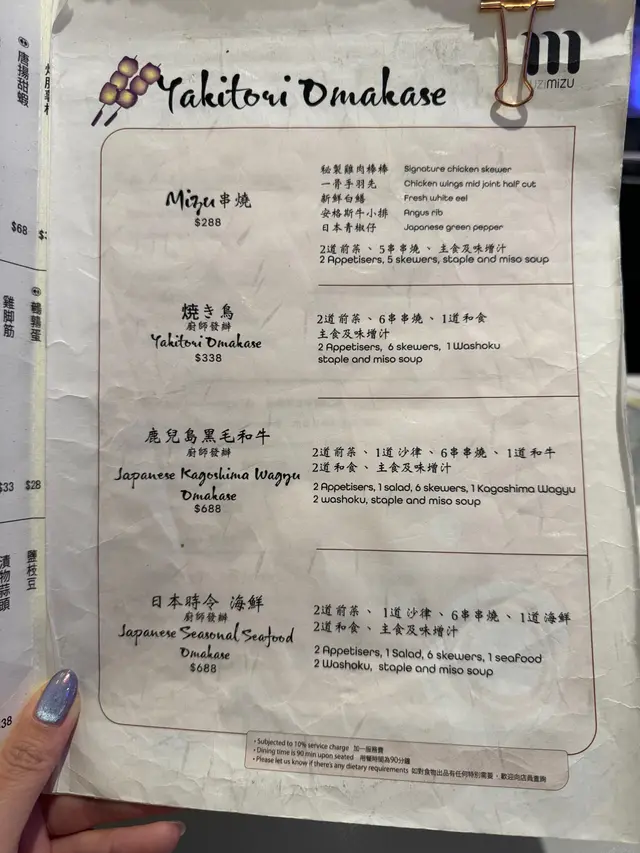 Yakitori Omakase
m
MIZU
Mizu串燒
$288
秘製雞肉棒棒 Signature chicken skewer
一骨手羽先 Chicken wings mid joint half cut
新鮮白鱔 Fresh white eel
安格斯牛小排 Angus rib
日本青椒仔 Japanese green pepper
2道前菜、5串串燒、主食及味增汁
2 Appetisers, 5 skewers, staple and miso soup
焼き鳥
廚師發辦
Yakitori Omakase
$338
2道前菜、6串串燒、1道和食
主食及味增汁
2 Appetisers, 6 skewers, 1 Washoku
staple and miso soup
鹿兒島黑毛和牛
廚師發辦
Japanese Kagoshima Wagyu
Omakase
$688
2道前菜、1道沙律、6串串燒、1道和牛
2道和食、主食及味增汁
2 Appetisers, 1 salad, 6 skewers, 1 Kagoshima Wagyu
2 washoku, staple and miso soup
日本時令 海鮮
廚師發辦
Japanese Seasonal Seafood
Omakase
$688
2道前菜、1道沙律、6串串燒、1道海鮮
2道和食、主食及味增汁
2 Appetisers, 1 Salad, 6 skewers, 1 seafood
2 Washoku, staple and miso soup
• Subjected to 10% service charge 加一服務費
• Dining time is 90 min upon seated 用餐時間為90分鐘
• Please let us know if there's any dietary requirements 如對食物出品有任何特別需要，歡迎向店員查詢
唐揚甜蝦
$68
鵪鶉蛋
雞腳筋
$33
$28
鹽枝豆
漬物蒜頭
38